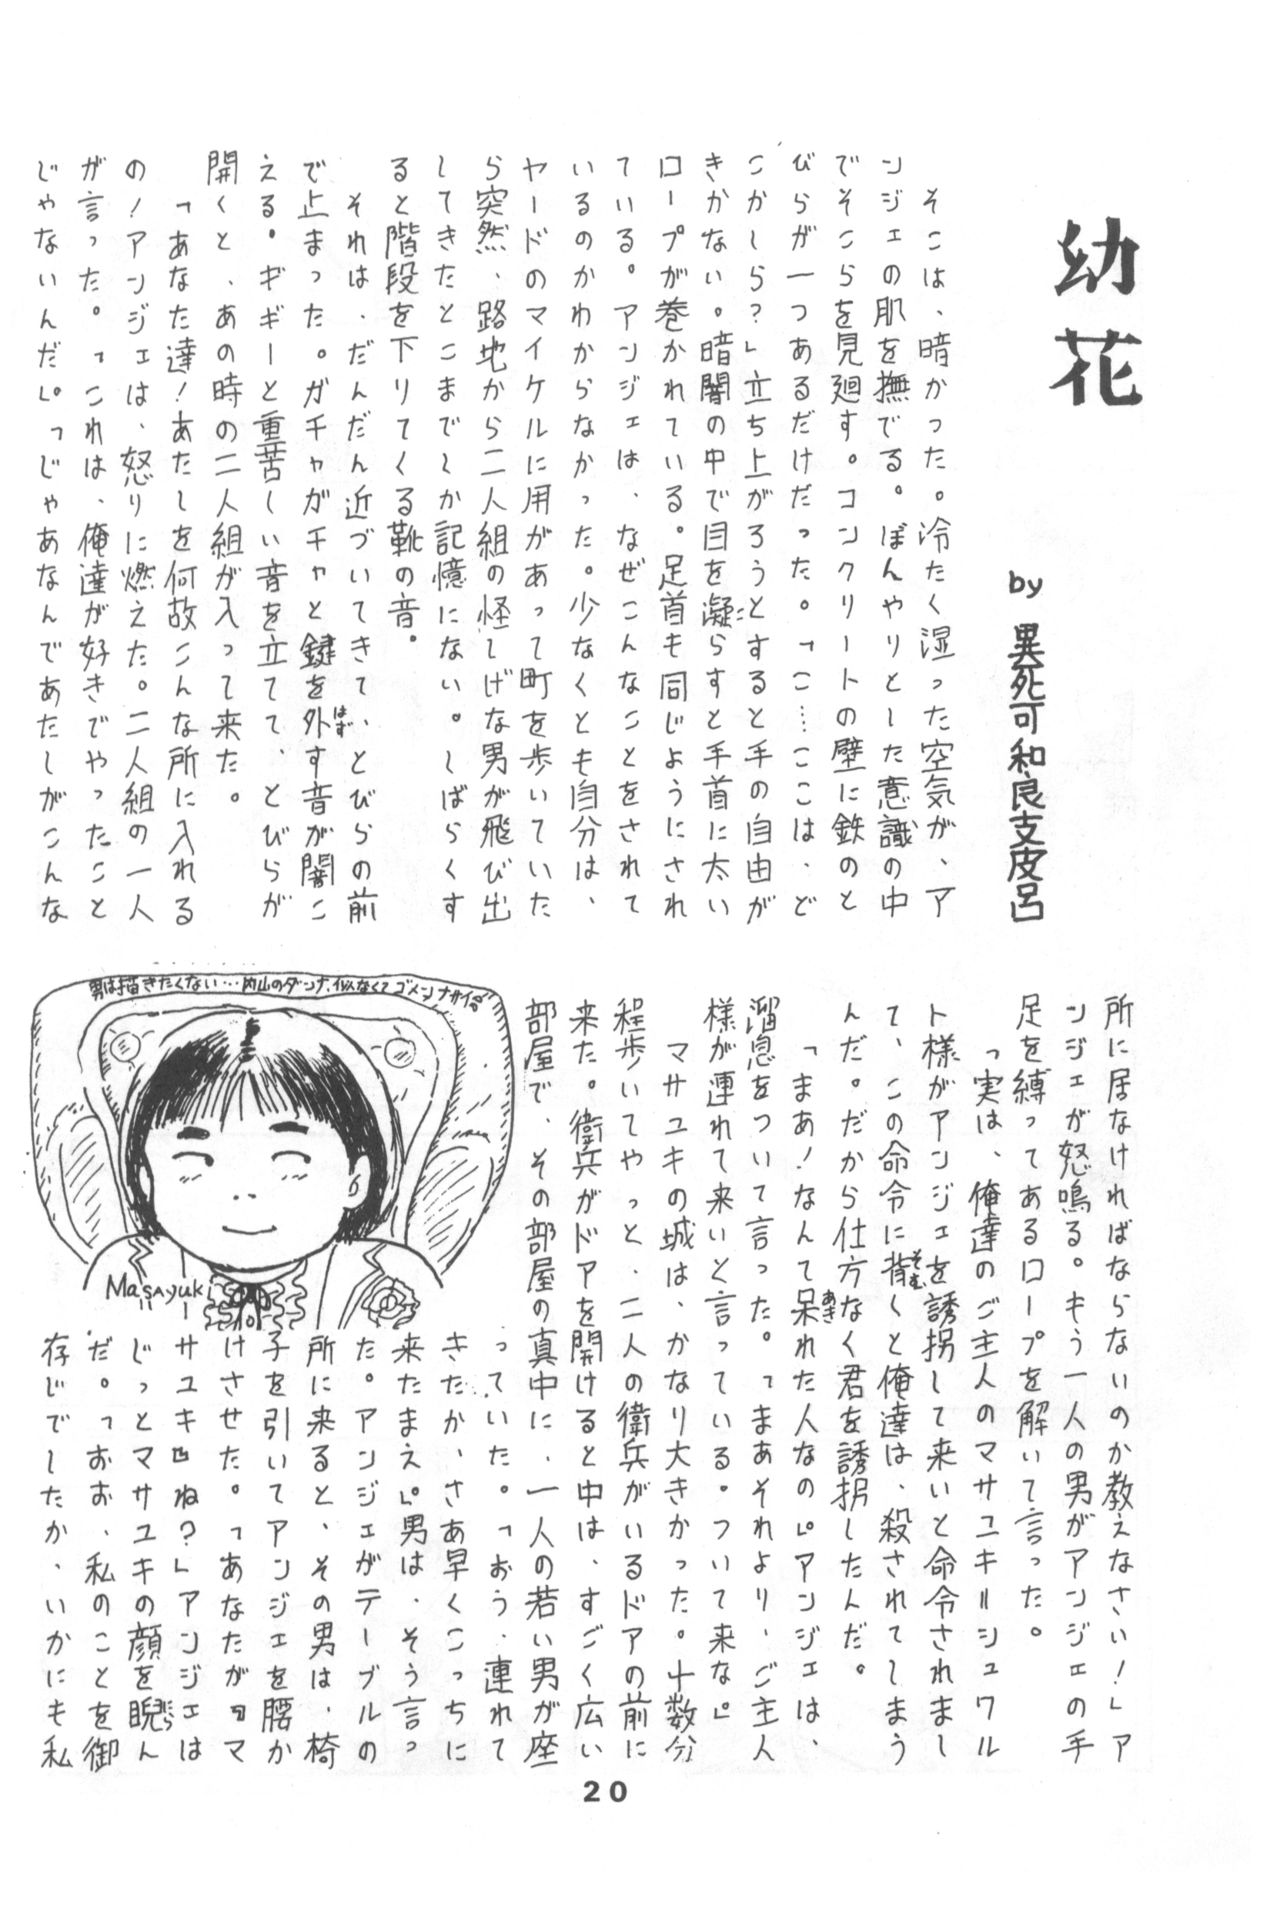 幼花
by 異死可和良支皮呂
そこは、暗かった。冷たく湿った空気が、ア
ンジェの肌を撫でる。ぼんやりとした意識の中
でそこらを見廻す。コンクリートの壁に鉄のと
びらが一つあるだけだった。「こ…ここは、ど
こかしら?」立ち上がろうとすると手の自由が
きかない。暗闇の中で目を凝らすと手首に太い
ロープが巻かれている。足首も同じようにされ
ている。アンジェは、なぜこんなことをされて
いるのかわからなかった。少なくとも自分は、
ヤードのマイケルに用があって町を歩いていた
ら突然、路地から二人組の怪しげな男が飛び出
してきたとこまでしか記憶にない。しばらくす
ると階段を下りてくる靴の音。
それは、だんだん近づいてきて、とびらの前
で止まった。ガチャガチャと鍵を外す音が闇こ
える。ギギーと重苦しい音を立てて、とびらが
開くと、あの時の二人組が入って来た。
「あなた達!あたしを何故こんな所に入れる
の!アンジェは、怒りに燃えた。二人組の一人
が言った。「これは、俺達が好きでやったこと
じゃないんだ」。「じゃあなんであたしがこんな
所に居なければならないのか教えなさい!」ア
ンジェが怒鳴る。もう一人の男がアンジェの手
足を縛ってあるロープを解いて言った。
「実は、俺達のご主人のマサユキ=シュワル
ト様がアンジェを誘拐して来いと命令されまし
て、この命令に背くと俺達は、殺されてしまう
んだ。だから仕方なく君を誘拐したんだ。
「まあ!なんて呆れた人なの」。アンジェは、
溜息をついて言った。「まあそれより、ご主人
様が連れて来いと言っている。ついて来な」。
マサユキの城は、かなり大きかった。十数分
程歩いてやっと、二人の衛兵がいるドアの前に
来た。衛兵がドアを開けると中は、すごく広い
部屋で、その部屋の真中に、一人の若い男が座
っていた。「おう、連れて
きたか、さあ早くこっちに
来たまえ」。男は、そう言っ
た。アンジェがテーブルの
所に来ると、その男は、椅
子を引いてアンジェを腰か
けさせた。「あなたが『マ
サユキ』ね?」アンジェは
じっとマサユキの顔を睨ん
だ。「おお、私のことを御
存じでしたか、いかにも私
男は描きたくない…内山のダンナ、似なくてゴメンナサイ。
Masayuki
20